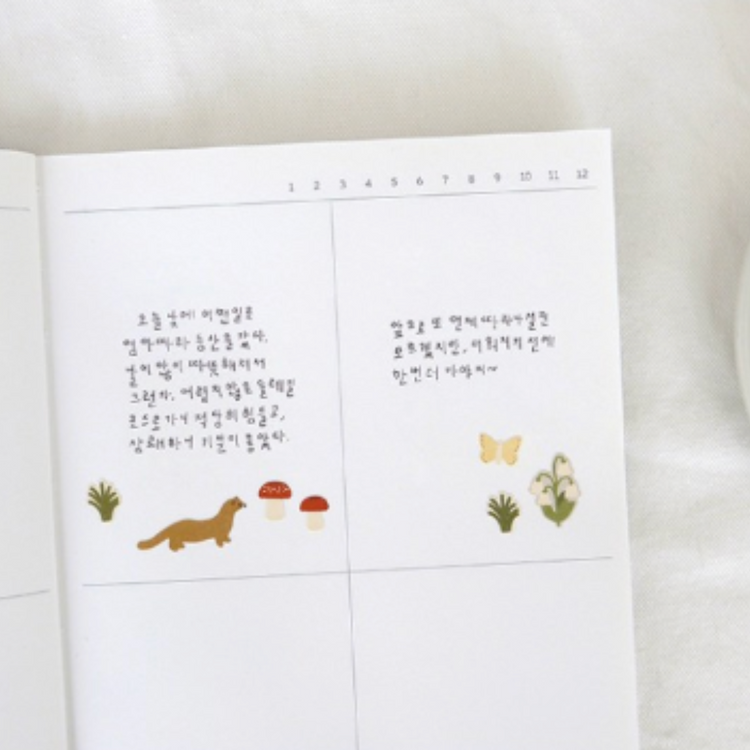 1 2 3 4 5 6 7 8 9 10 11 12
오늘 낮에 어쩐일로
엄마따라 등산을 갔다.
날이 많이 따뜻해져서
그런가, 어렵지않은 둘레길
코스로 가서 적당히 힘들고,
상쾌하니 기분이 좋았다.
앞으로 또 언제 따라가질진
모르겠지만, 더워지기 전에
한번 더 가야지~